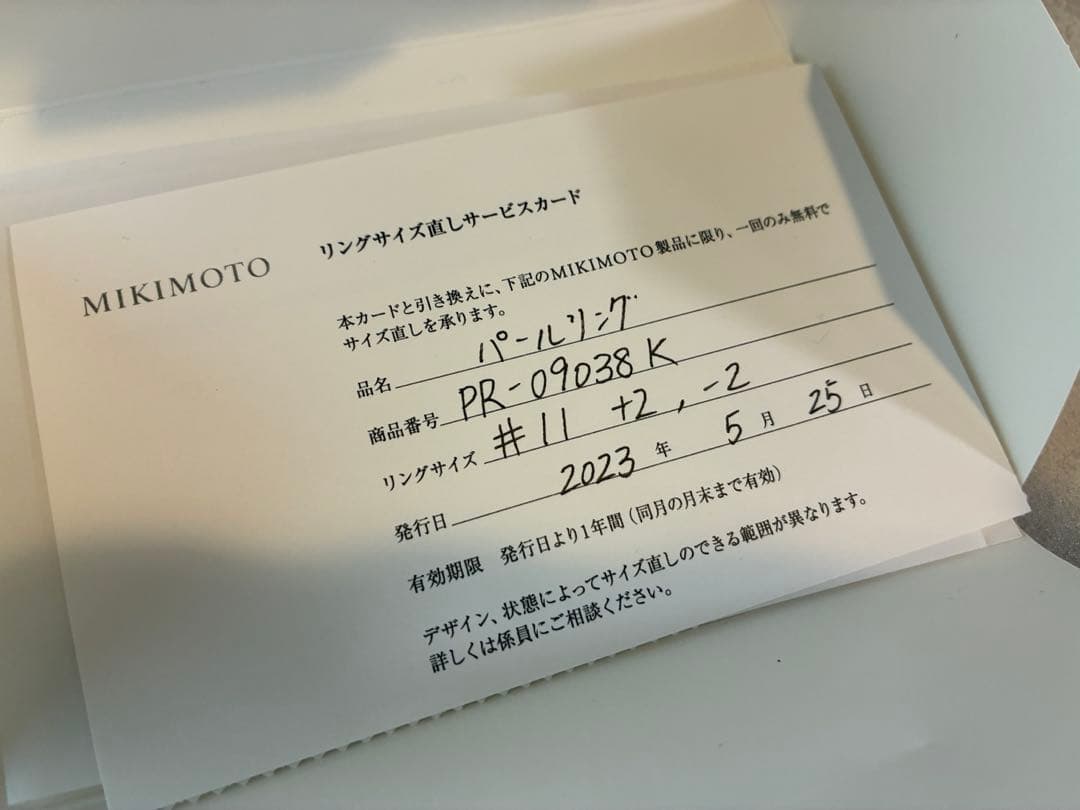 MIKIMOTO
リングサイズ直しサービスカード
本カードと引き換えに、下記のMIKIMOTO製品に限り、一回のみ無料で
サイズ直しを承ります。
品名 パールリング
商品番号 PR-09038K
リングサイズ #11 +2, -2
発行日 2023 年 5 月 25 日
有効期限 発行日より1年間（同月の月末まで有効）
デザイン、状態によってサイズ直しのできる範囲が異なります。
詳しくは係員にご相談ください。